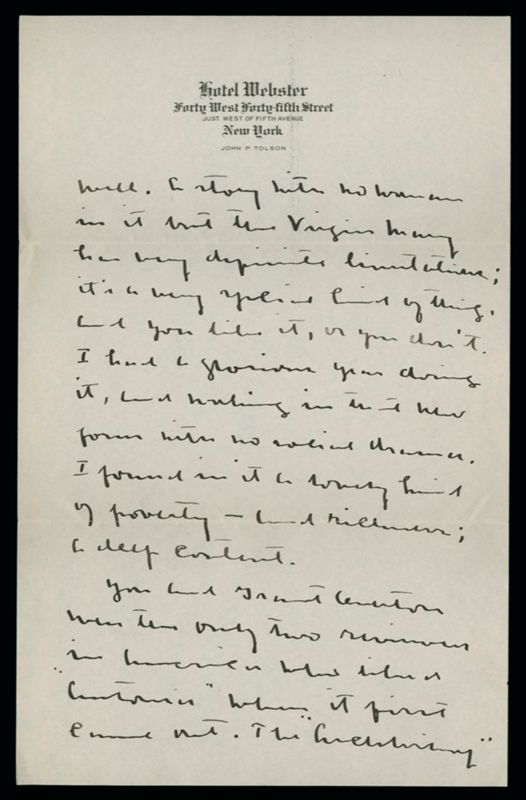 Hotel Webster
Forty West Forty-fifth Street
JUST WEST OF FIFTH AVENUE
New York
JOHN P. TOLSON
well. A story with no woman
in it but the Virgin Mary
has very definite limitations;
it's a very special kind of thing,
and you like it, or you don't.
I had a glorious year doing
it, and working in that new
form with no solid drama.
I found in it a lovely kind
of poverty — and richness;
a deep content.
You and Grant
were the only two reviewers
in America who liked
"Antonia" when it first
came out. The "Archbishop"